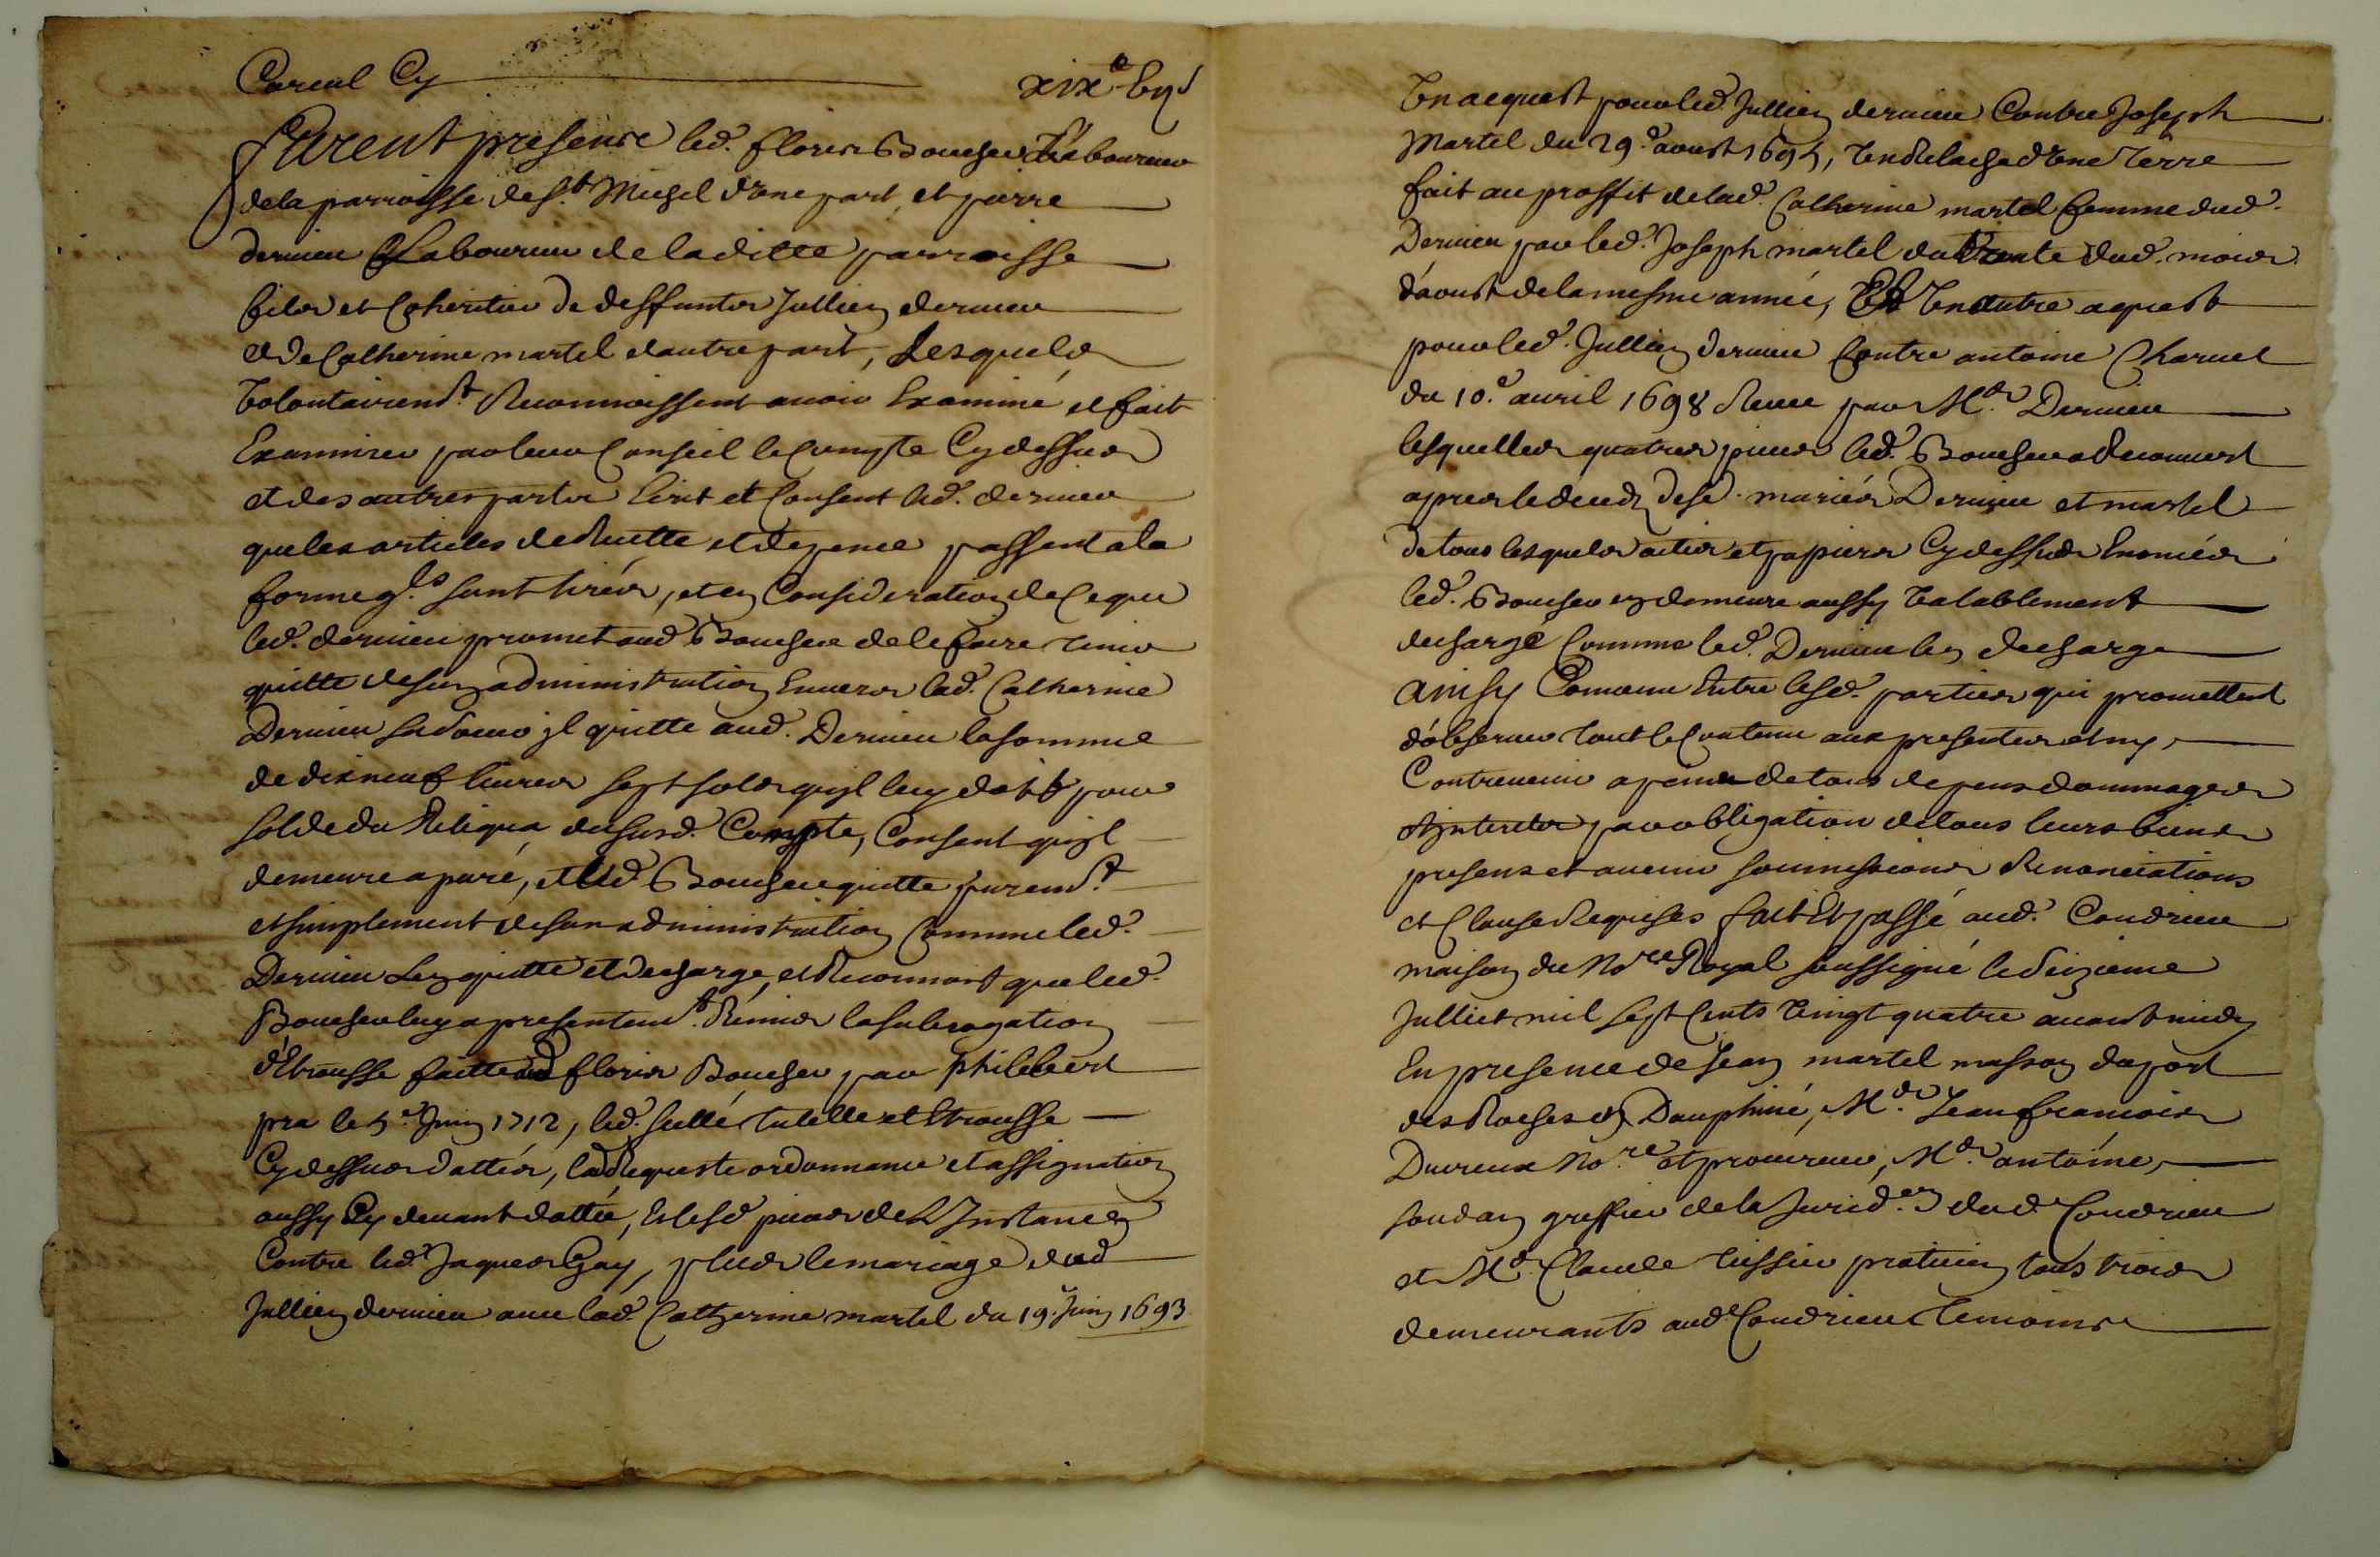 Pareul Cy xix# vij s
Furent presens led. Floris Boucher Laboureur
de la parroisse de St. Michel d'une part, et pierre
dervieu Laboureur de laditte parroisse
fils et Coheritier de deffunts Jullien dervieu
et de Catherine martel d'autre part, Lesquels
Volontairemt. Reconnoissent avoir Examiné et fait
Examiner par leur Conseil le Compte Cy dessus
et des autres parts Ecrit et Consent led. dervieu
que les articles de Recette et depence passent a la
forme qls. sont tirés, et en Consideration de ce que
led. dervieu promet aud. Boucher de le faire tenir
quitte de son administration Envers lad. Catherine
Dervieu sa soeur jl quitte aud. Dervieu la somme
de dix neuf livres sept sols qu'jl luy doibt pour
solde du Reliqua dusd. Compte, Consent qu'jl
demeure apuré, et led. Boucher quitte puremt.
et simplement de son administration Comme led.
Dervieu L'en quitte et decharge, et Reconnoit que led.
Boucher luy a presentemt. Rémis la subrogation
d'Etrousse faitte aud. floris Boucher par philibert
pra le 5e. Juin 1712, led. scellé tutelle et Etrousse
Cy dessus dattés, lad. Requeste ordonnance et assignation
aussy Cy devant dattée, Et lesd. pieces de L'Instance
Contre led. Jaques Gay, plus le mariage dud.
Jullien dervieu avec lad. Catherine martel du 19e. Juin 1693
Un acquest pour led. Jullien dervieu Contre Joseph
Martel du 29e. aoust 1695, Un Relache d'Une Terre
fait au proffit de lad. Catherine martel femme dud.
Dervieu par led. Joseph martel du trente dud. mois
d'aoust de la mesme année, Et Un autre aquest
pour led. Jullien dervieu Contre antoine Charvet
du 10e. avril 1698 Receu par Me. Dervieu
lesquelles quatres pieces led. Boucher a Recouvert
apres le deceds desd. mariés Dervieu et martel
de tous lesquels actes et papiers Cy dessus Enoncés
led. Boucher en demeure aussy Valablement
dechargé Comme led. Dervieu l'en decharge
ainsy Convenu Entre lesd. parties qui promettent
d'observer tout le Contenu aux presentes et ny
Contrevenir a peine de tous depens dommages
et jnterets par obligation de tous leurs biens
presens et avenir soumissions Renonciations
et Clauses Requises fait Et passé aud. Condrieu
maison du Nore. Royal soussigné le seizieme
Julliet mil sept Cents Vingt quatre avant midy
En presence de Jean martel masson du port
des Roches en Dauphiné, Me. Jean francois
Duvreux Nore. et procureur, Me. antoine
soudan greffier de la Juridon. dud. Condrieu
et Me. Claude tissieu praticien tous trois
demeurants aud. Condrieu temoins